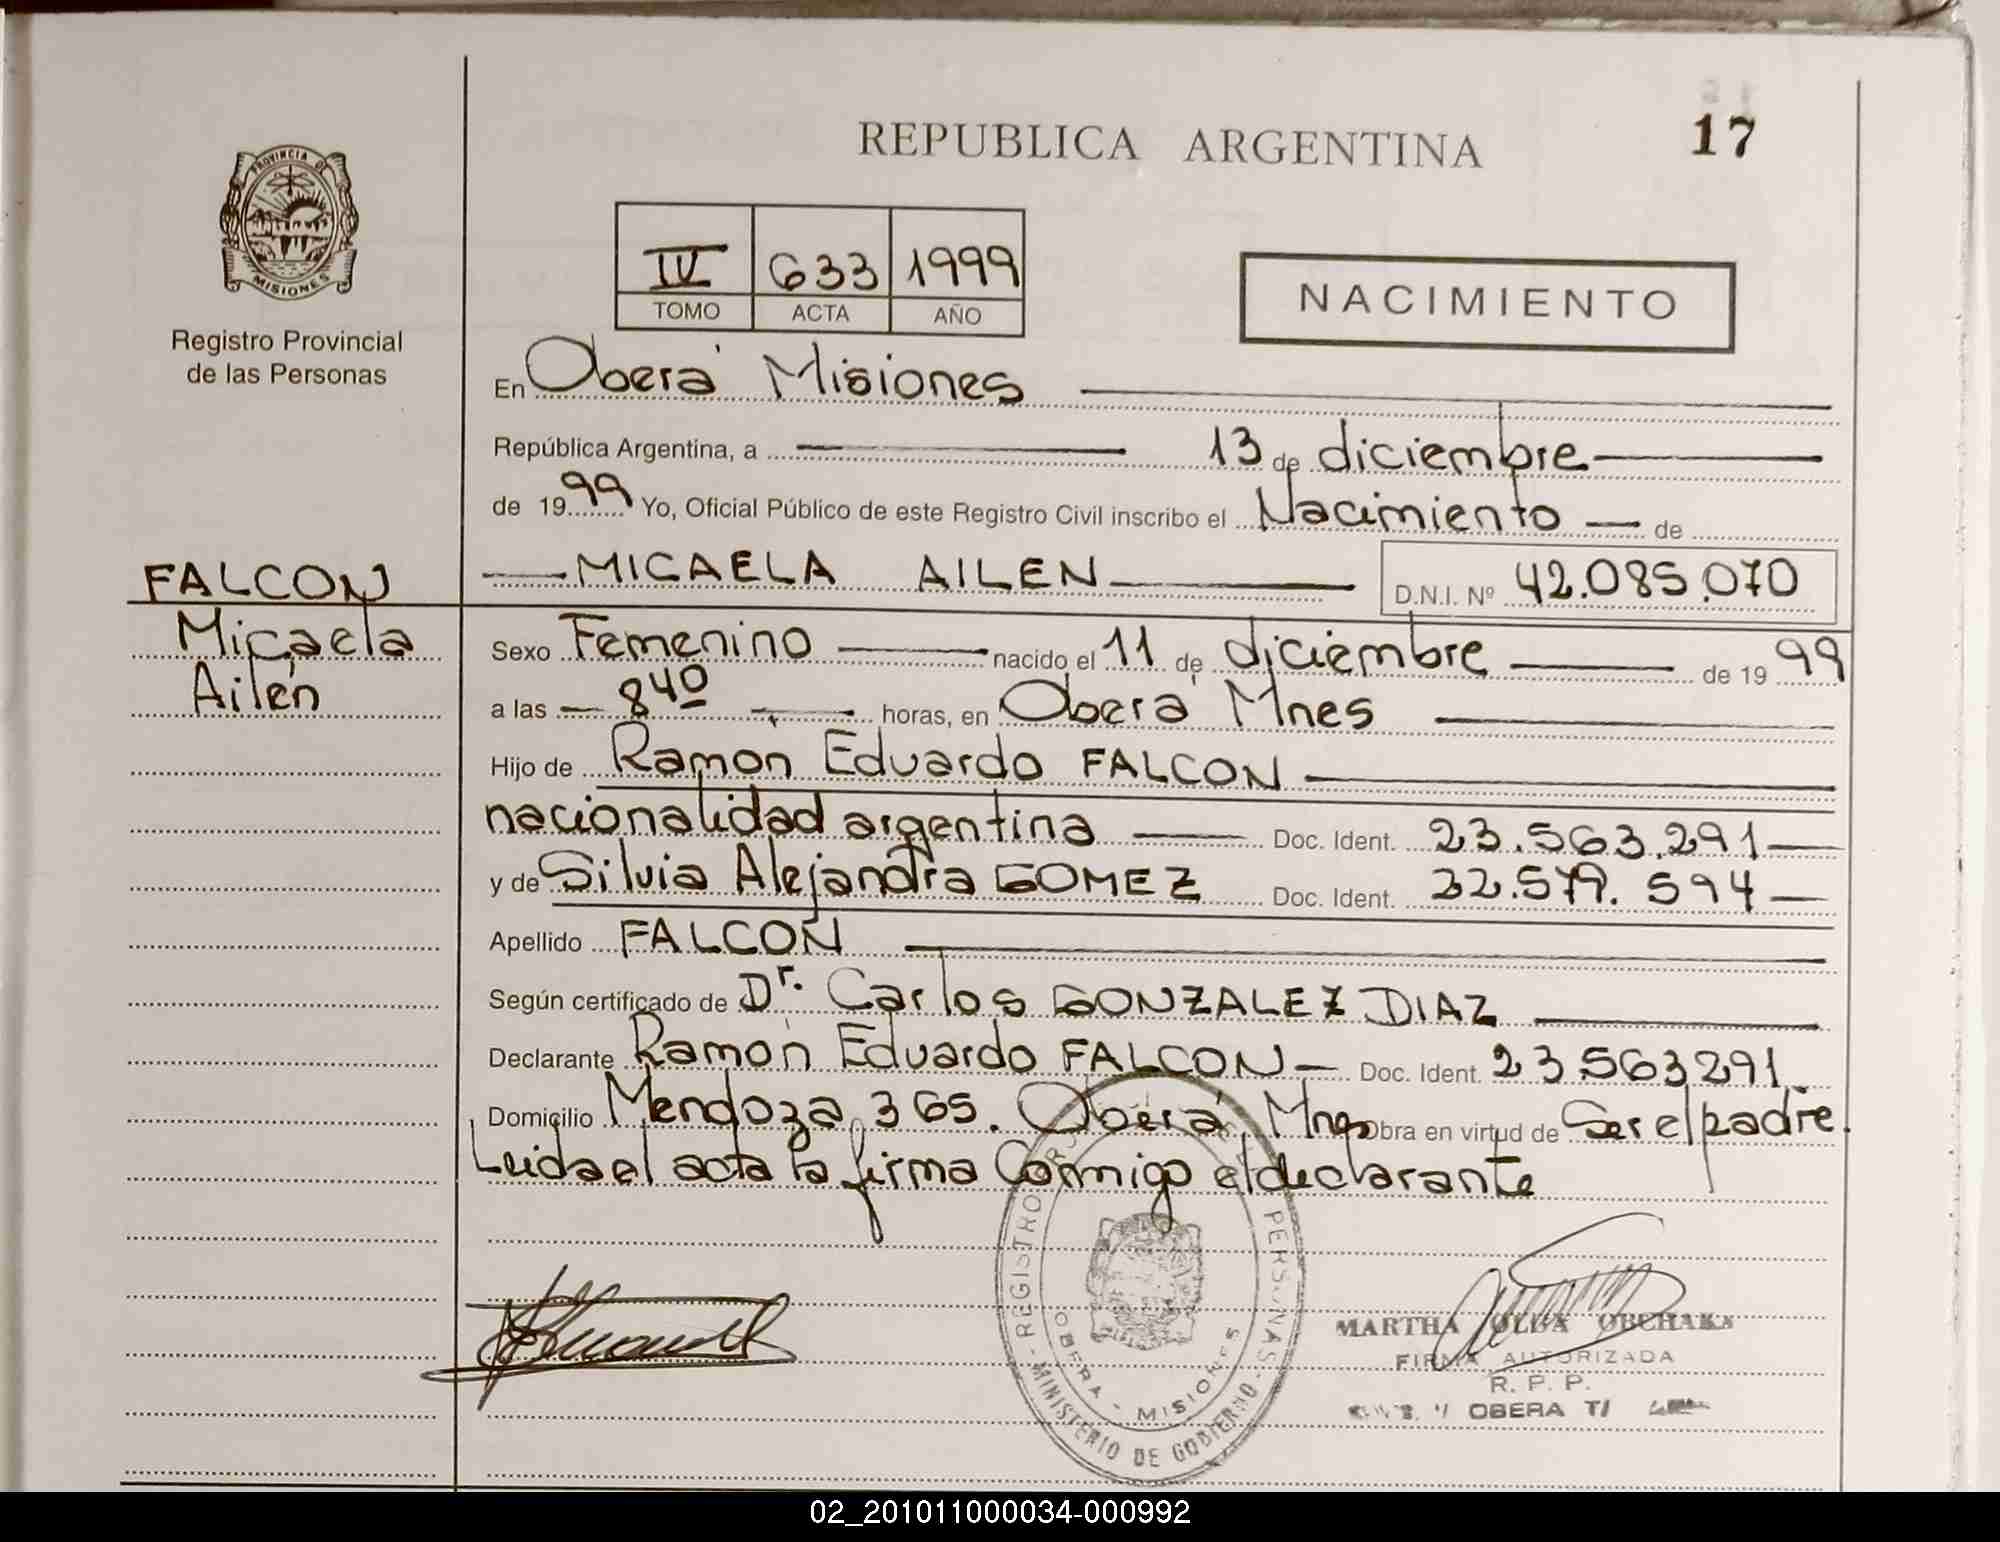 REPUBLICA ARGENTINA
17
PROVINCIA DE
MISIONES
Registro Provincial
de las Personas
IV 633 1999
TOMO ACTA AÑO
NACIMIENTO
En Oberá Misiones
República Argentina, a 13 de diciembre
de 1999 Yo, Oficial Público de este Registro Civil inscribo el Nacimiento de
MICAELA AILEN D.N.I. Nº 42.085.070
FALCON
Micaela
Ailén
Sexo Femenino nacido el 11 de diciembre de 1999
a las 8 40 horas, en Oberá Mnes
Hijo de Ramón Eduardo FALCON
nacionalidad argentina Doc. Ident. 23.563.291
y de Silvia Alejandra GOMEZ Doc. Ident.
Apellido FALCON
Según certificado de Dr. Carlos GONZALEZ DIAZ
Declarante Ramón Eduardo FALCON Doc. Ident. 23.563.291.
Domicilio Mendoza 365. Oberá, Mnes Obra en virtud de Ser el padre.
Leida el acta la firma Conmigo el declarante
REGISTRO PERSONAS
OBERA - MISIONES
MINISTERIO DE GOBIERNO
MARTHA OLGA OBCHAKS
FIRMA AUTORIZADA
R. P. P.
OBERA
02_201011000034-000992